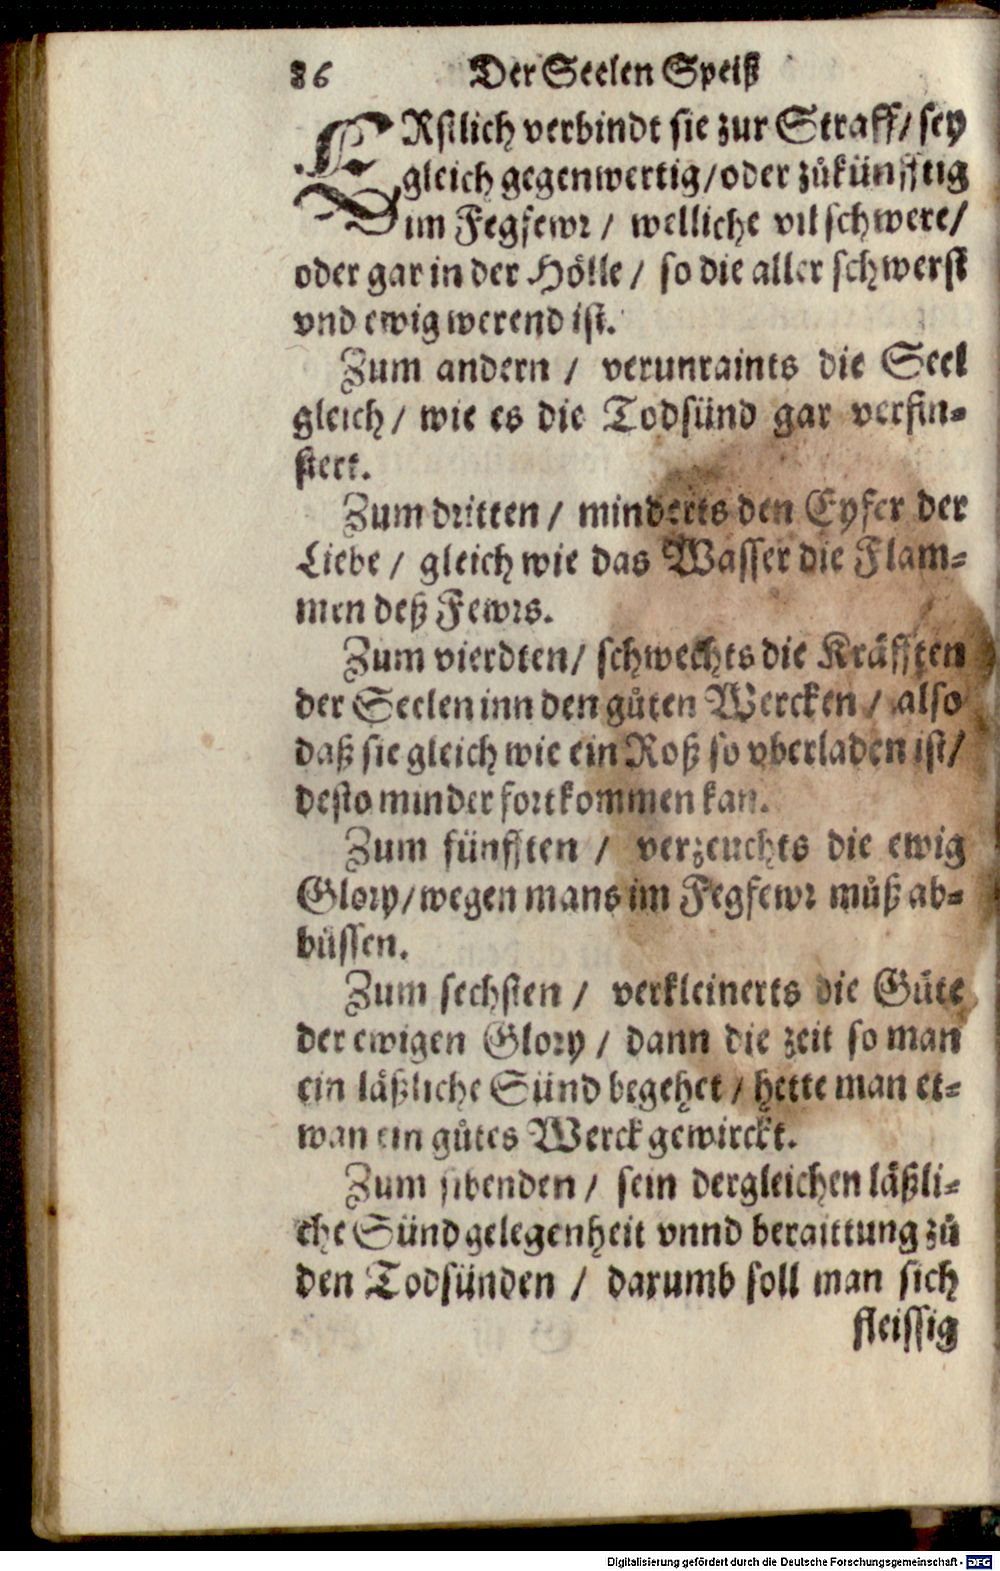 86 Der Seelen Speiß
ERstlich verbindt sie zur Straff/ sey
gleich gegenwertig/oder zůkünfftig
im Fegfewr / welliche vil schwere/
oder gar in der Hölle / so die aller schwerst
vnd ewig werend ist.
Zum andern / verunraints die Seel
gleich / wie es die Todsünd gar verfin-
stert.
Zum dritten / minderts den Eyfer der
Liebe / gleich wie das Wasser die Flam-
men deß Fewrs.
Zum vierdten/ schwechts die Kräfften
der Seelen inn den gůten Wercken / also
daß sie gleich wie ein Roß so vberladen ist/
desto minder fortkommen kan.
Zum fünfften / verzeuchts die ewig
Glory/wegen mans im Fegfewr můß ab-
büssen.
Zum sechsten / verkleinerts die Gůte
der ewigen Glory / dann die zeit so man
ein läßliche Sünd begehet / hette man et-
wan ein gůtes Werck gewirckt.
Zum sibenden / sein dergleichen läßli-
che Sünd gelegenheit vnnd beraittung zů
den Todsünden / darumb soll man sich
fleissig
Digitalisierung gefördert durch die Deutsche Forschungsgemeinschaft - DFG